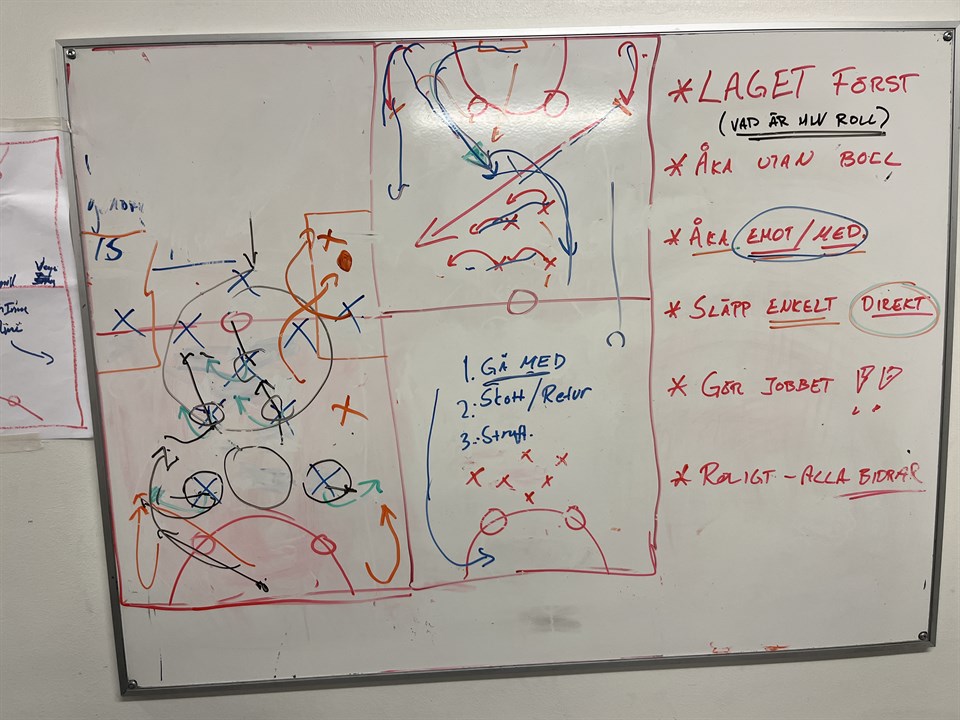 15
1. GÅ MED
2. Skott/Retur
3. Straff.
* LAGET FÖRST
(VAD ÄR MIN ROLL)
* ÅKA UTAN BOLL
* ÅKA EMOT/MED
* SLÄPP ENKELT DIREKT
* GÖR JOBBET !!
* ROLIGT - ALLA BIDRAR